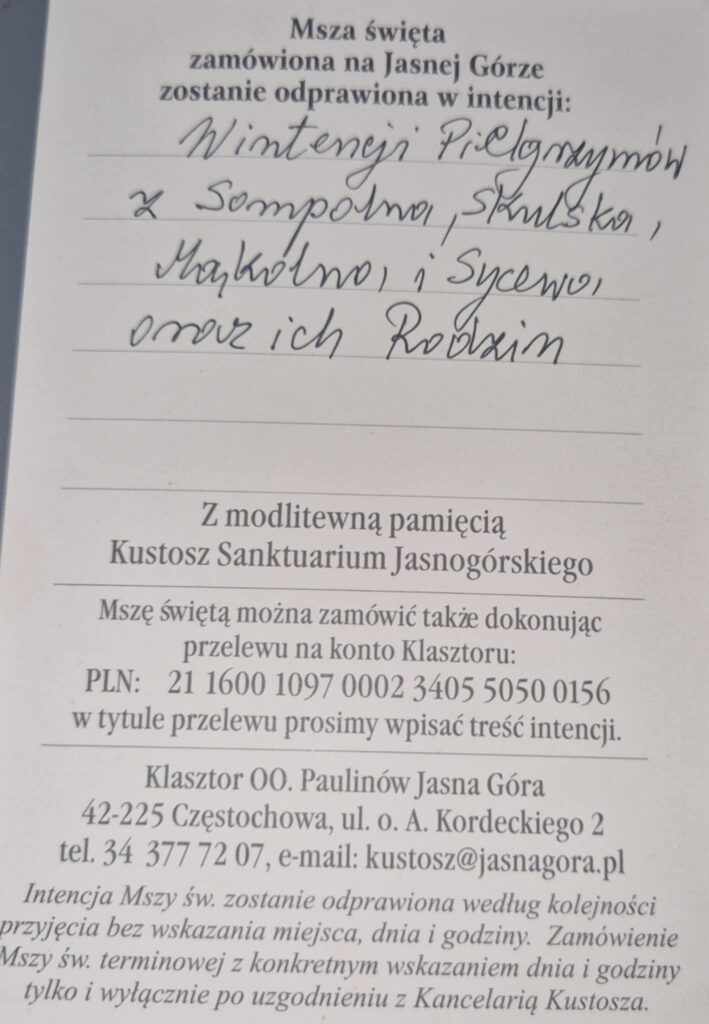 Msza święta
zamówiona na Jasnej Górze
zostanie odprawiona w intencji:
W intencji Pielgrzymów
z Sompolna, Skulska,
Mąkolna, i Sycewa,
oraz ich Rodzin
Z modlitewną pamięcią
Kustosz Sanktuarium Jasnogórskiego
Mszę świętą można zamówić także dokonując
przelewu na konto Klasztoru:
PLN: 21 1600 1097 0002 3405 5050 0156
w tytule przelewu prosimy wpisać treść intencji.
Klasztor OO. Paulinów Jasna Góra
42-225 Częstochowa, ul. o. A. Kordeckiego 2
tel. 34 377 72 07, e-mail: kustosz@jasnagora.pl
Intencja Mszy św. zostanie odprawiona według kolejności
przyjęcia bez wskazania miejsca, dnia i godziny. Zamówienie
Mszy św. terminowej z konkretnym wskazaniem dnia i godziny
tylko i wyłącznie po uzgodnieniu z Kancelarią Kustosza.